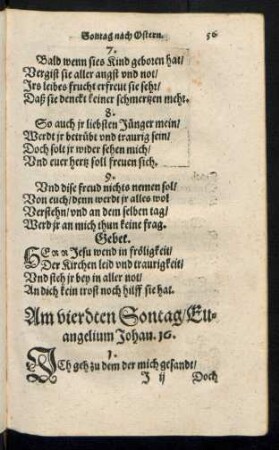 Sontag nach Ostern. 56
7.
Bald wenn sies Kind geboren hat/
Vergist sie aller angst vnd not/
Irs leibes frucht erfreut sie sehr/
Daß sie denckt keiner schmertzen mehr.
8.
So auch jr liebsten Jünger mein/
Werdt jr betrübt vnd traurig sein/
Doch solt jr wider sehen mich/
Vnd euer hertz soll freuen sich.
9.
Vnd dise freud nichts nemen sol/
Von euch/denn werdt jr alles wol
Verstehn/vnd an dem selben tag/
Werd jr an mich thun keine frag.
Gebet.
HErr Jesu wend in frőligkeit/
Der Kirchen leid vnd traurigkeit/
Vnd steh jr bey in aller not/
An dich kein trost noch hilff sie hat.
Am vierdten Sontag/Eu-
angelium Johan. 16.
1.
ICh geh zu dem der mich gesandt/
I ij Doch